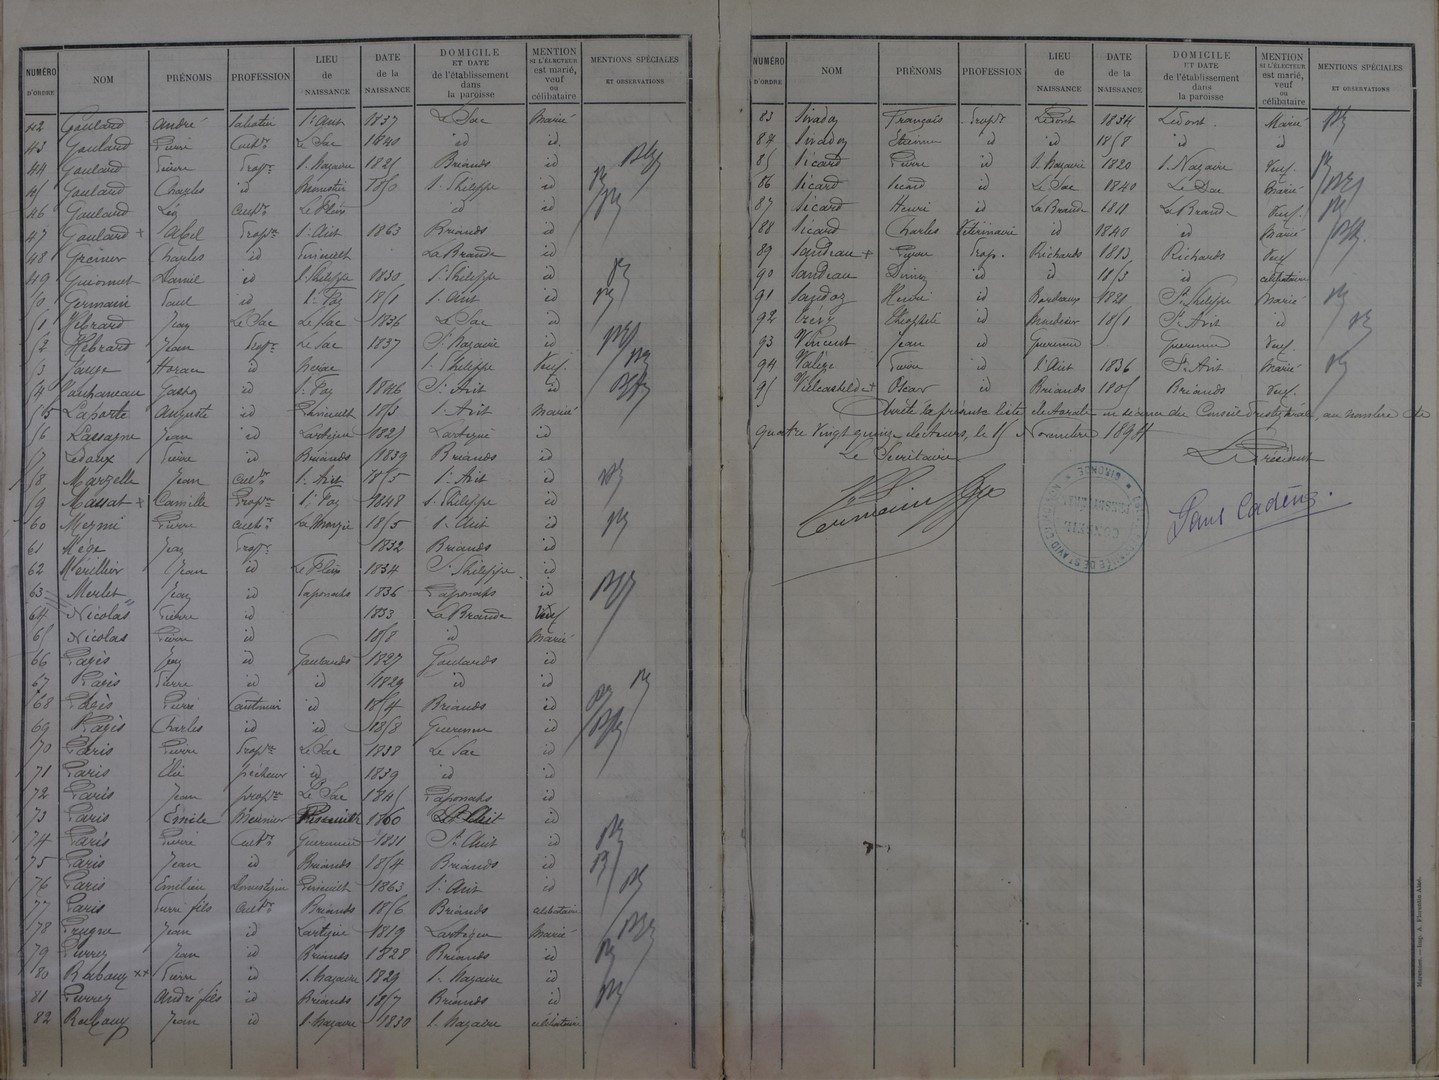 NUMÉRO D'ORDRE NOM PRÉNOMS PROFESSION LIEU de NAISSANCE DATE de la NAISSANCE DOMICILE ET DATE de l'établissement dans la paroisse MENTION SI L'ÉLECTEUR est marié, veuf ou célibataire MENTIONS SPÉCIALES ET OBSERVATIONS
42 Goulard André 1837 Le Sac Marié
43 Goulard Pierre Cultr Le Sac 1840 id id
44 Goulard Pierre Propre St Nazaire Briands id
45 Goulard Charles id St Philippe id
46 Goulard Cultr Le Fleix id id
47 Goulard + Abel Propre St Avit 1863 Briands id
48 Grenier Charles id La Brande id
49 Guionnet Daniel id St Philippe 1830 St Philippe id
50 Germain Paul id Ste Foy 1851 St Avit id
51 Hébrard Jean Le Sac Le Sac 1836 Le Sac id
52 Hébrard Jean Propre Le Sac 1837 St Nazaire id
53 Jauge id St Philippe Veuf
54 id Ste Foy 1846 St Avit id
55 Laporte Auguste id 1853 St Avit Marié
56 Lassagne Jean id Lartigue 1825 Lartigue id
57 Ledoux Pierre id Briands 1839 Briands id
58 Marzelle Jean Cultr St Avit 1855 St Avit id
59 Massat + Camille Propre Ste Foy 1848 St Philippe id
60 Meymi Pierre Cultr 1855 St Avit id
61 Mège Jean Propre 1832 Briands id
62 Merillier Jean id Le Fleix 1834 St Philippe id
63 Merlet Jean id Taponats 1836 Taponats id
64 Nicolas Pierre id 1833 La Brande Veuf
65 Nicolas Pierre id 1858 id Marié
66 Paris Jean id Goulards 1827 Goulards id
67 Pagis Pierre id id 1829 id id
68 Pagis Pierre Cantonnier id 1854 Briands id
69 Pagis Charles id id 1858 Guerenne id
70 Paris Pierre Propre Le Sac 1838 Le Sac id
71 Paris Elie pêcheur id 1839 id id
72 Paris Jean propre Le Sac 1845 Taponats id
73 Paris Emile Meunier 1860 St Avit id
74 Paris Pierre Cultr Guerenne 1831 St Avit id
75 Paris Jean id Briands 1854 Briands id
76 Paris Emilien Domestique Pineuilh 1863 St Avit id
77 Paris Pierre fils Cultr Briands 1856 Briands célibataire
78 Prugne Jean id Lartigue 1819 Lartigue Marié
79 Pierrey Jean id Briands 1828 Briands id
80 Reibaux ++ Pierre id St Nazaire 1829 St Nazaire id
81 Pierrey André fils id Briands 1857 Briands id
82 Jean id St Nazaire 1830 St Nazaire célibataire
NUMÉRO D'ORDRE NOM PRÉNOMS PROFESSION LIEU de NAISSANCE DATE de la NAISSANCE DOMICILE ET DATE de l'établissement dans la paroisse MENTION SI L'ÉLECTEUR est marié, veuf ou célibataire MENTIONS SPÉCIALES ET OBSERVATIONS
83 Sivadon François Propre Ledont 1834 Ledont Marié
84 Sivadon Etienne id id 1858 id id
85 Sicard Pierre id St Nazaire 1820 St Nazaire Veuf
86 Sicard id Le Sac 1840 Le Sac Marié
87 Sicard Henri id La Brande 1811 La Brande Veuf
88 Sicard Charles Vétérinaire id 1840 id Marié
89 Sandeau + Pierre Prop. Richards 1813 Richards Veuf
90 Sandeau id id 1853 id célibataire
91 Sandoz Henri id Bordeaux 1821 St Philippe Marié
92 Théophile id 1851 St Avit id
93 Vincent Jean id Guerenne Guerenne Veuf
94 Valège Pierre id St Avit 1836 St Avit Marié
95 + Oscar id Briands 1805 Briands Veuf
Arrêté la présente liste électorale en séance du Conseil Presbytéral, au nombre de
quatre vingt quinze électeurs, le 15 Novembre 1894
Le Secrétaire Le Président
Germain Paul Cadène
CONSEIL PRESBYTÉRAL
GIRONDE
Marennes. — Imp. A. Florentin Aîné.